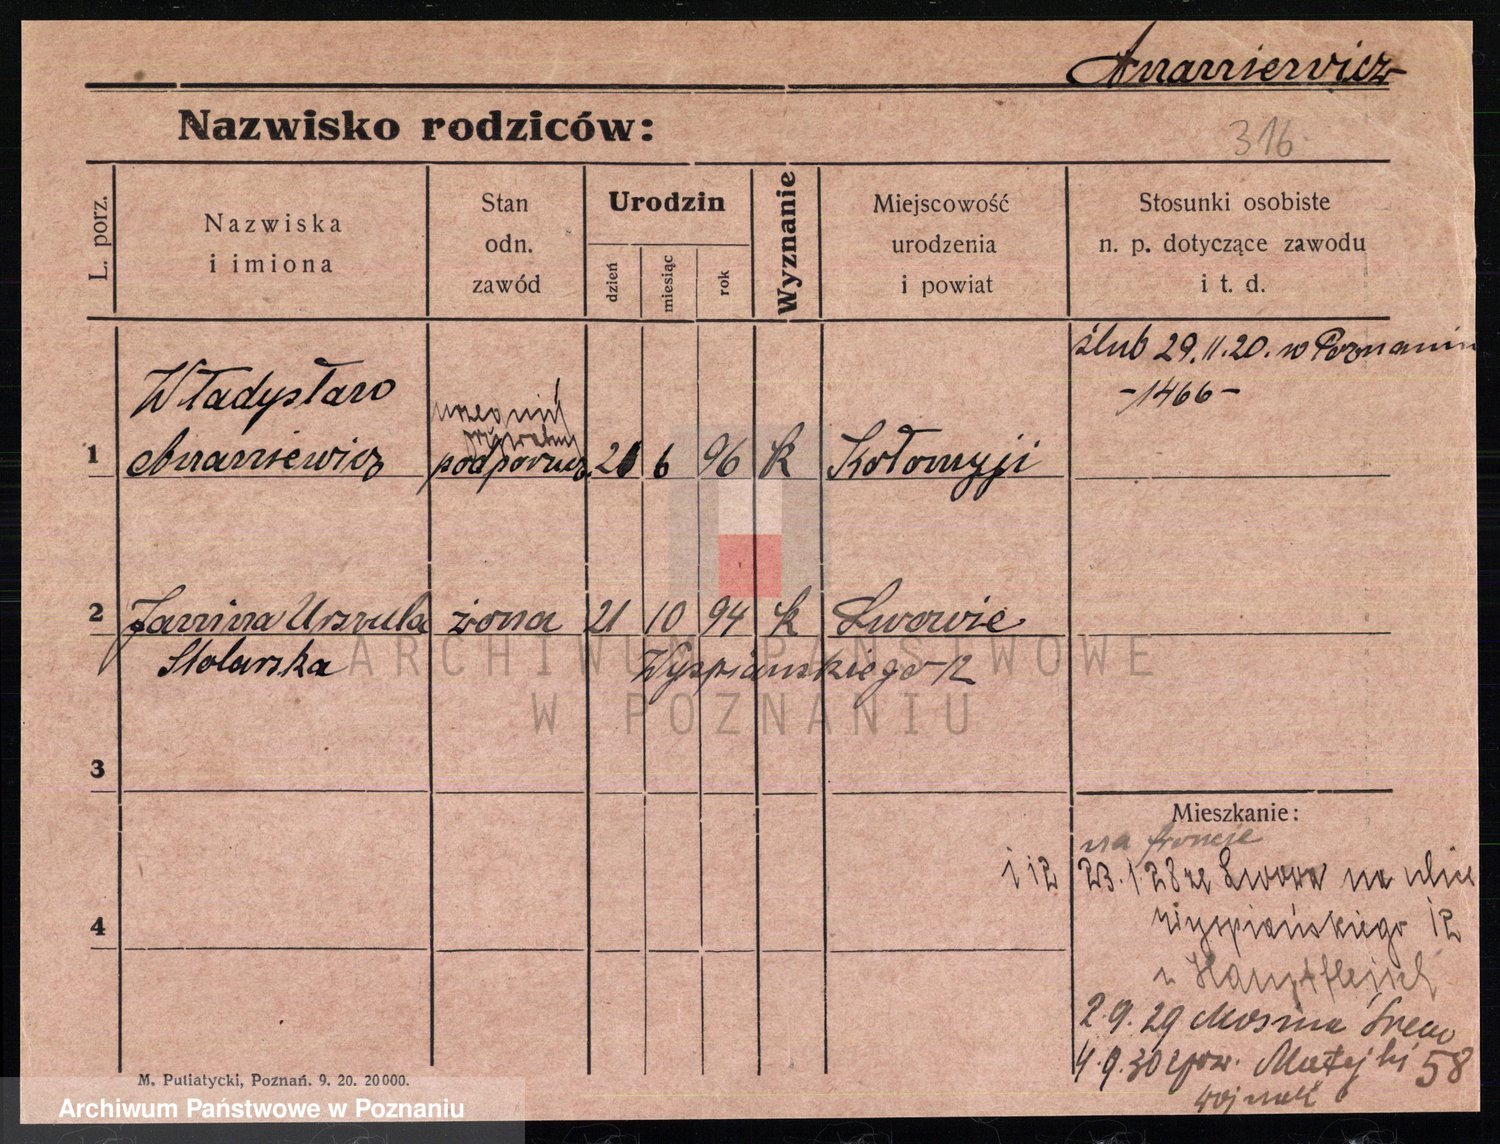 Ananiewicz
Nazwisko rodziców:
316.
L. porz.
Nazwiska
i imiona
Stan
odn.
zawód
Urodzin
dzień
miesiąc
rok
Wyznanie
Miejscowość
urodzenia
i powiat
Stosunki osobiste
n. p. dotyczące zawodu
i t. d.
ślub 29.11.20. w Poznaniu
-1466-
Władysław
urzędnik
prywatny
1 Ananiewicz podporucz. 6 96 k Kołomyji
2 Janina Urszula żona 21 10 94 k Lwowie
Stolarska Wyspiańskiego 12
ARCHIWUM PAŃSTWOWE
W POZNANIU
3
Mieszkanie:
na froncie
i 12 23.1 28 ze Lwowa na ulice
Wyspiańskiego 12
4
2.9.29 Mosina Śrem
4.9.30 Matejki 58
M. Putiatycki, Poznań. 9. 20. 20000.
Archiwum Państwowe w Poznaniu